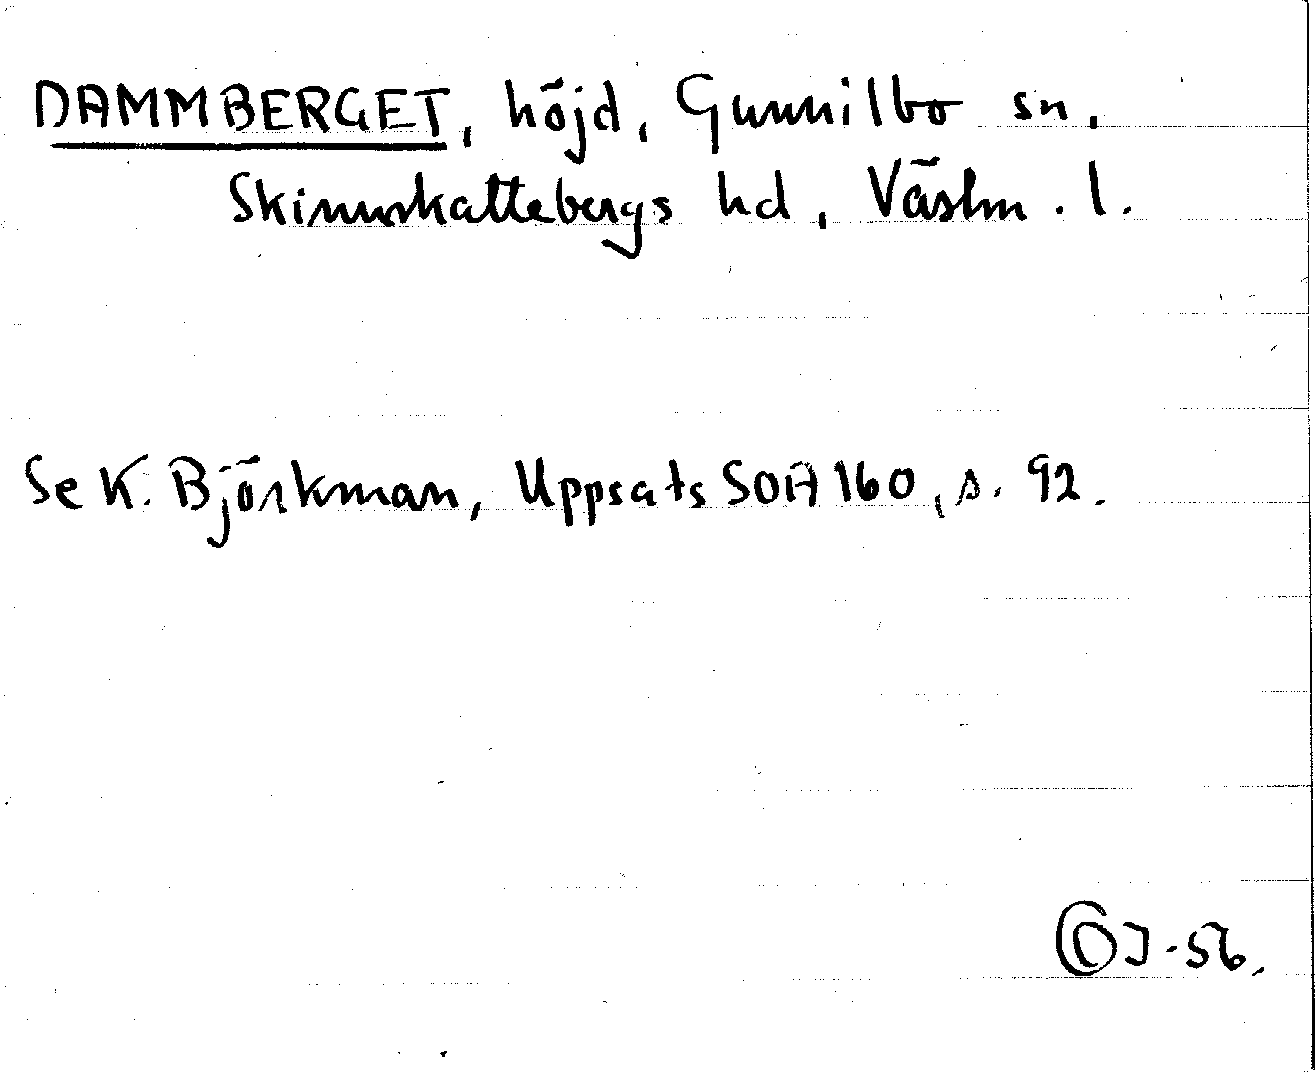 DAMMBERGET, höjd, Gunnilbo sn,
Skinnskattebergs hd, Västm. l.
Se K. Björkman, Uppsats SOA 160, s. 92.
-56.